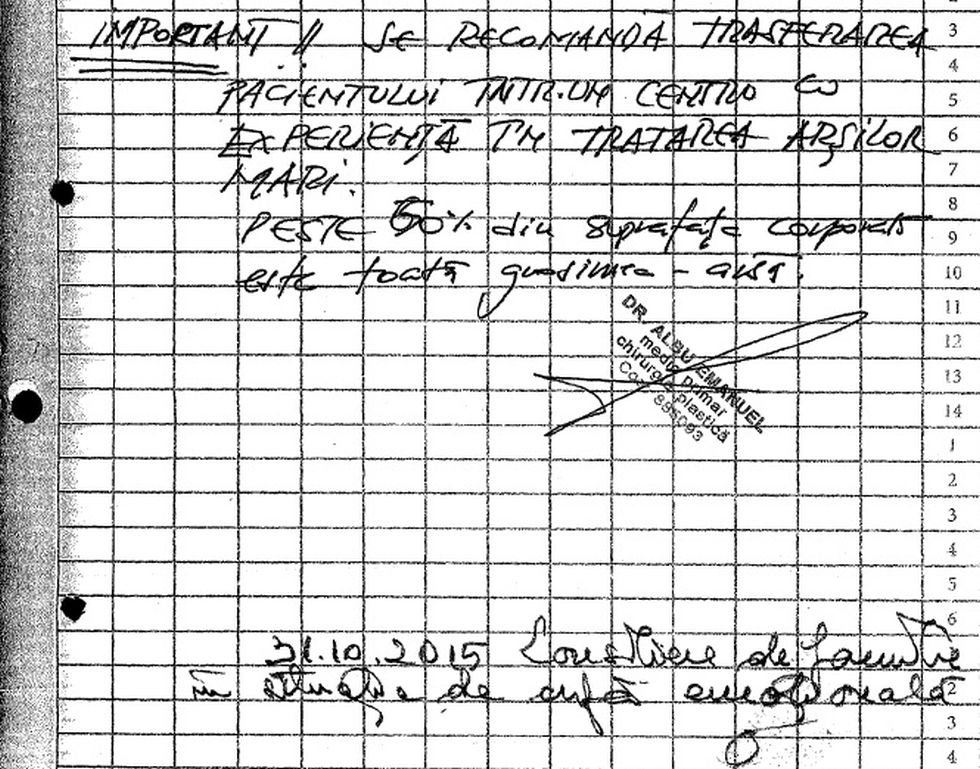 IMPORTANT !! SE RECOMANDĂ TRASFERAREA
PACIENTULUI INTR-UN CENTRU CU
EXPERIENȚĂ ÎN TRATAREA ARȘILOR
MARI.
PESTE 50% din suprafața corporală
este toată grosimea - arsă.
DR. ALBU EMANUEL
medic primar
chirurgie plastică
Cod 895093
31.10.2015 Consiliere de familie
în situație de criză emoțională
3
4
5
6
7
8
9
10
11
12
13
14
1
2
3
4
5
6
2
3
4